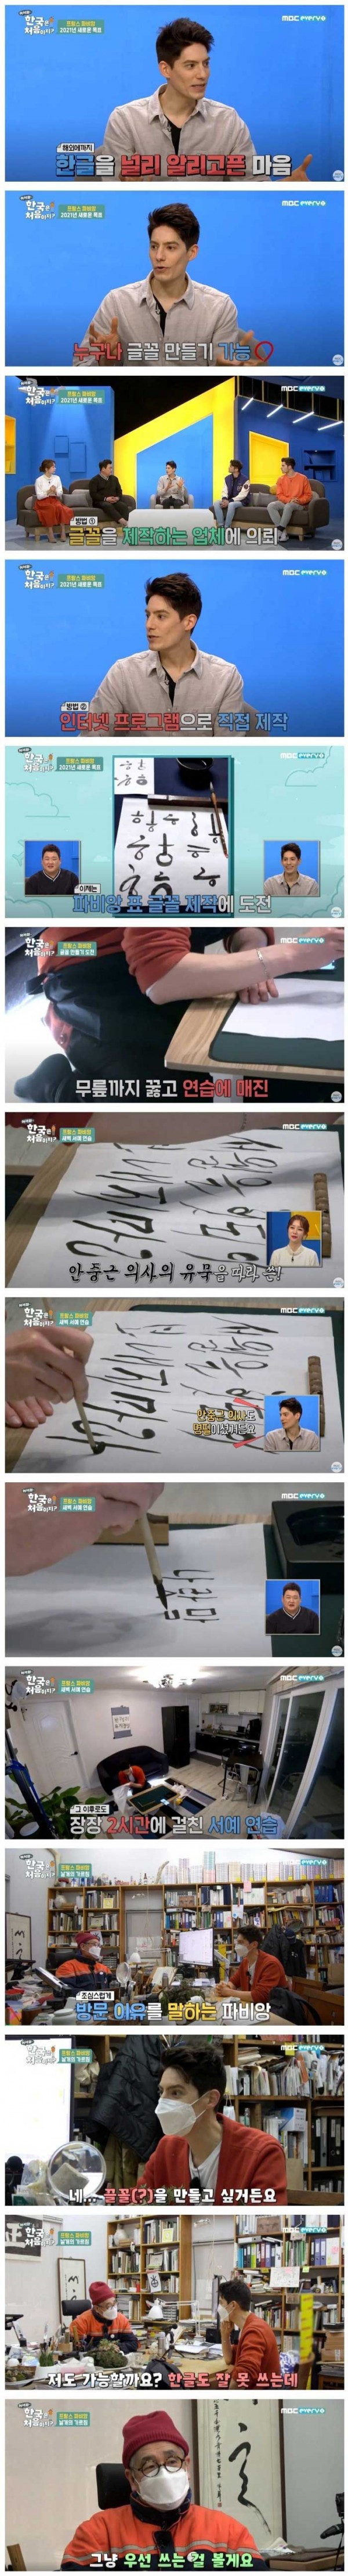 어서와~
한국은
처음이지?
프랑스 파비앙
2021년 새로운 목표
MBC every1
해외에까지
한글을 널리 알리고픈 마음
어서와~
한국은
처음이지?
프랑스 파비앙
2021년 새로운 목표
MBC every1
누구나 글꼴 만들기 가능
어서와~
한국은
처음이지?
프랑스 파비앙
2021년 새로운 목표
MBC every1
방법 ①
글꼴을 제작하는 업체에 의뢰
어서와~
한국은
처음이지?
프랑스 파비앙
2021년 새로운 목표
MBC every1
방법 ②
인터넷 프로그램으로 직접 제작
어서와~
한국은
처음이지?
프랑스 파비앙
2021년 새로운 목표
MBC every1
이제는
파비앙 표 글꼴 제작에 도전
어서와~
한국은
처음이지?
프랑스 파비앙
글꼴 만들기 도전
MBC every1
무릎까지 꿇고 연습에 매진
어서와~
한국은
처음이지?
프랑스 파비앙
새벽 서예 연습
MBC every1
안중근 의사의 유묵을 따라 쓴!
어서와~
한국은
처음이지?
프랑스 파비앙
새벽 서예 연습
MBC every1
안중근 의사도
명필이셨거든요
어서와~
한국은
처음이지?
프랑스 파비앙
새벽 서예 연습
MBC every1
어서와~
한국은
처음이지?
프랑스 파비앙
새벽 서예 연습
MBC every1
그 이후로도
장장 2시간에 걸친 서예 연습
어서와~
한국은
처음이지?
프랑스 파비앙
날개의 가르침
MBC every1
조심스럽게
방문 이유를 말하는 파비앙
프랑스 파비앙
날개의 가르침
MBC every1
네... 끌꼴(?)을 만들고 싶거든요
어서와~
한국은
처음이지?
프랑스 파비앙
날개의 가르침
MBC every1
저도 가능할까요? 한글도 잘 못 쓰는데
어서와~
한국은
처음이지?
프랑스 파비앙
날개의 가르침
MBC every1
그냥 우선 쓰는 걸 볼게요